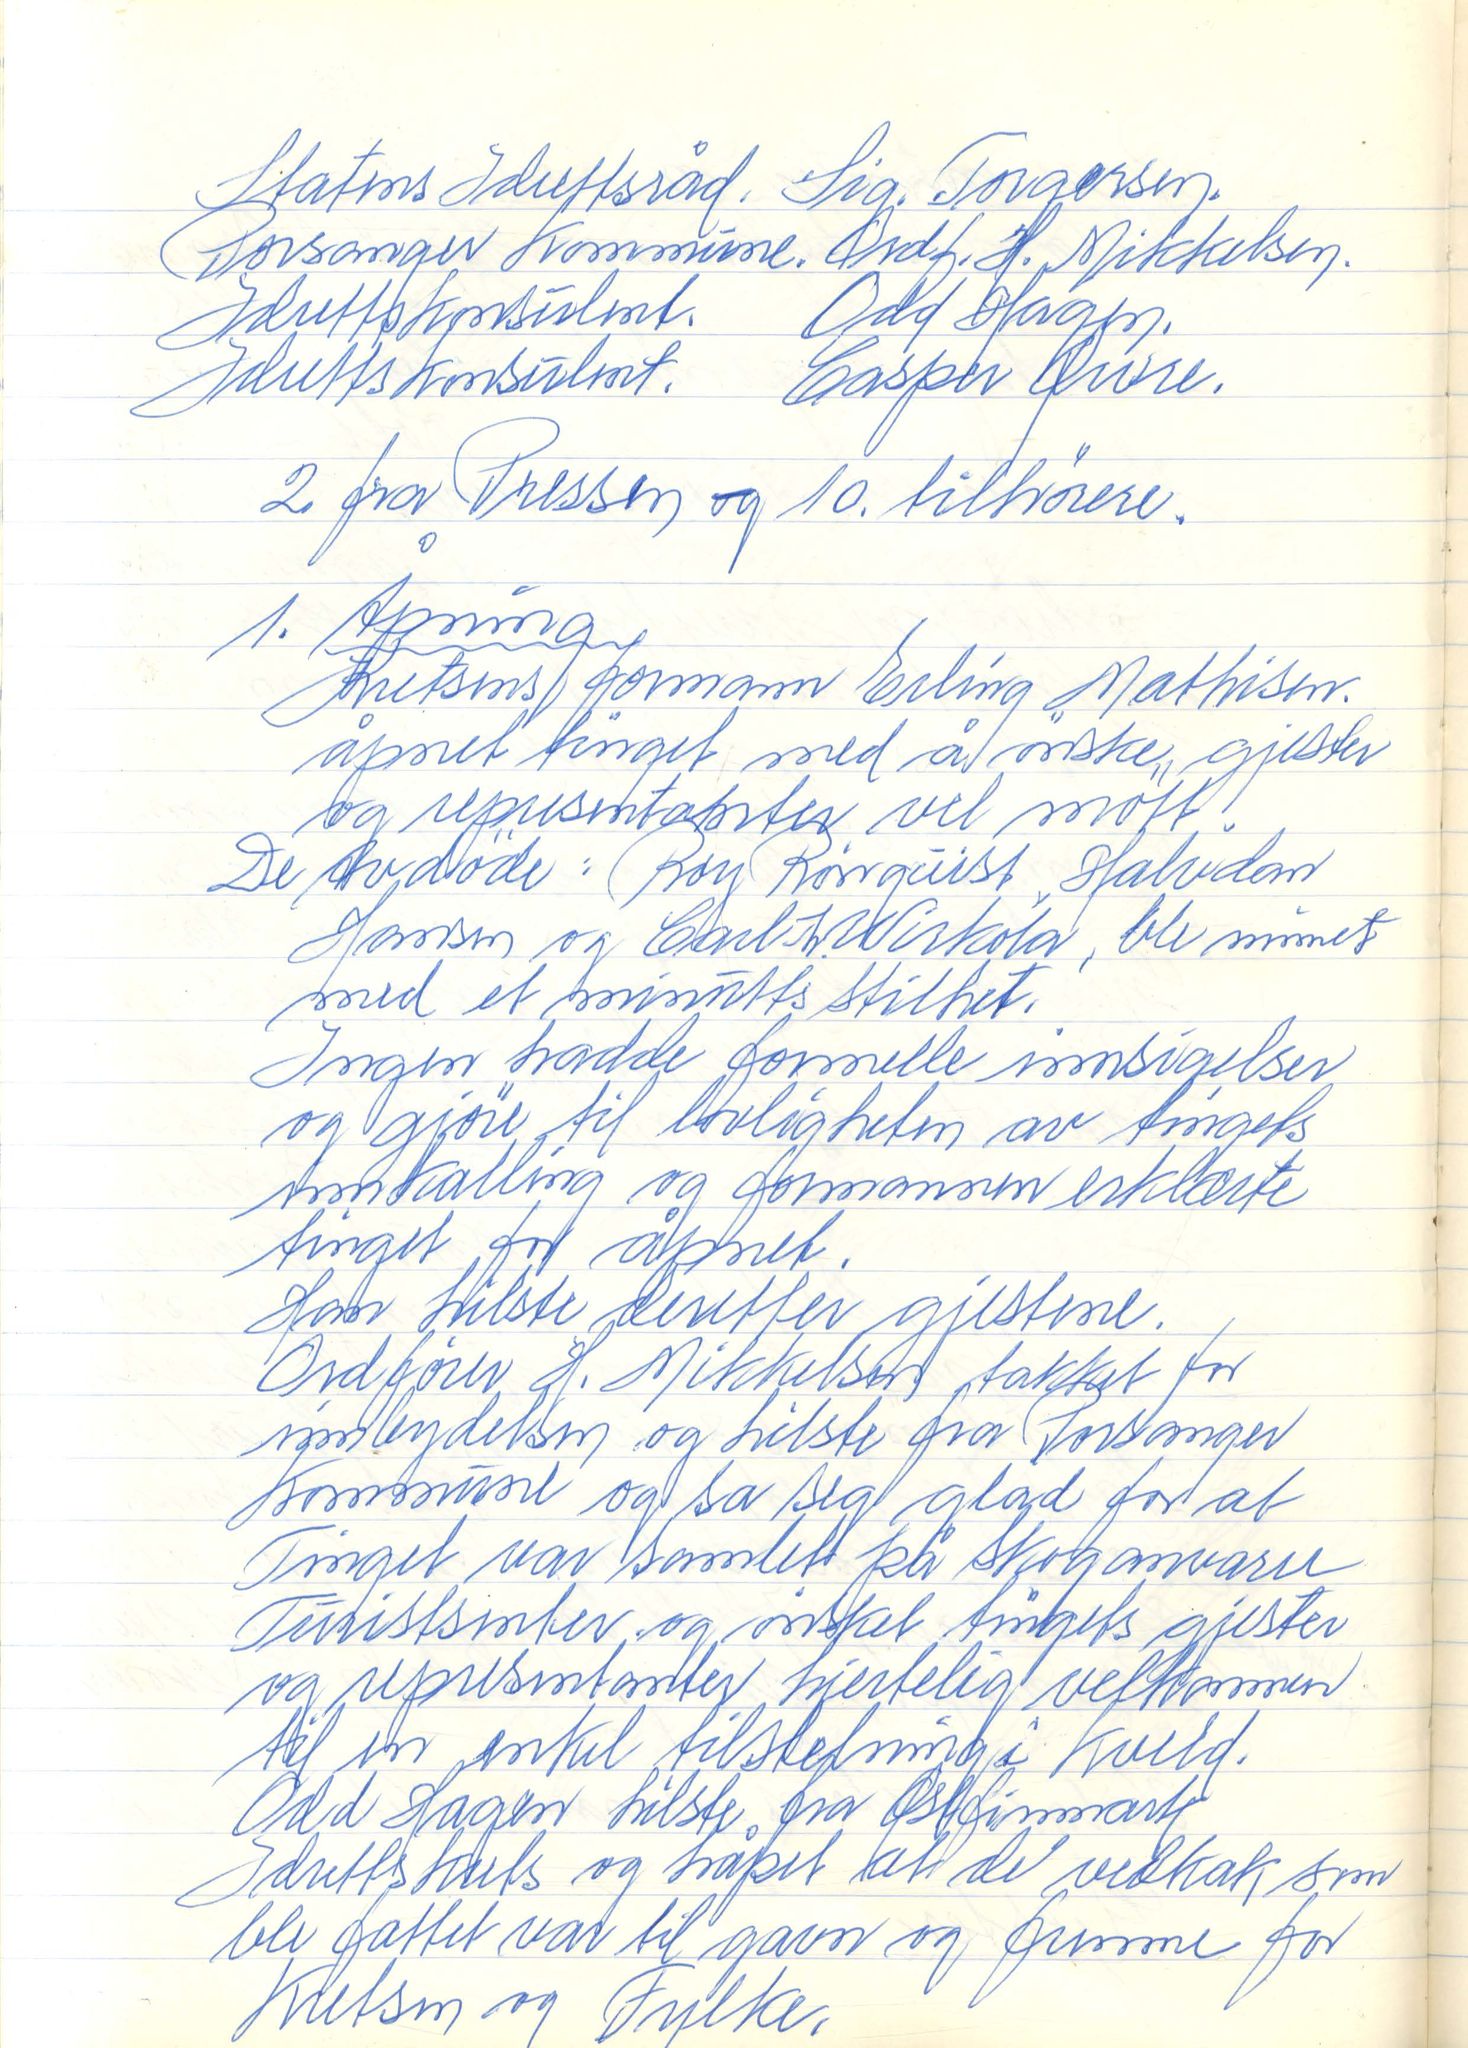 Statens Idrettsråd. Sig. Torgersen.
Porsanger Kommune. Ordf. H. Mikkelsen.
Idrettskonsulent. Odd Hagen.
Idrettskonsulent. Casper
2. fra Pressen og 10. tilhörere.
1. Åpning
Kretsens formann Erling Mathisen.
åpnet tinget med å önske, gjester
og representanter vel mött.
De avdöde: Roy Rönquist, Halvdan
Hansen og Carl Wirkola, ble minnet
med et minutts stillhet.
Ingen hadde formelle innsigelser
og gjöre til lovligheten av tingets
innkalling og formannen erklærte
tinget for åpnet.
Han hilste deretter gjestene.
Ordförer H. Mikkelsen takket for
innbydelsen og hilste fra Porsanger
Kommune og sa seg glad for at
Tinget var samlet på Skoganvarre
Turistsenter og önsket tingets gjester
og representanter hjertelig velkommen
til en enkel tilstelning i kveld.
Odd Hagen hilste fra Östfinnmark
Idrettskrets og håpet at de vedtak som
ble fattet var til gavn og fremme for
Kretsen og Fylke.